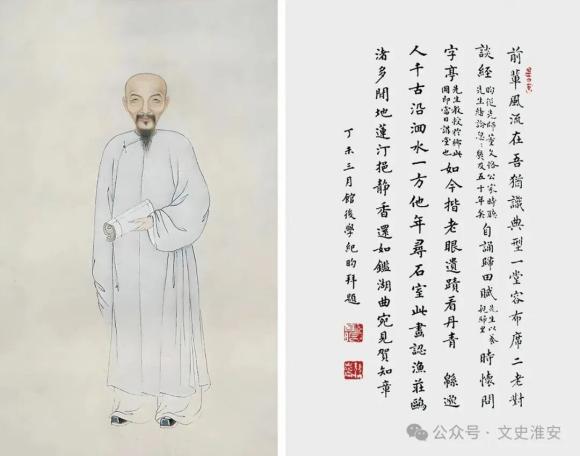 前輩風流在吾猶識典型一堂容布席二老對
談經昀從先師董文恪公家時聆先生緒論忽忽及五十年矣自誦歸田賦先生以養親歸里時懷問
字亭先生教授於鄉此圖即當日講堂也如今揩老眼遺蹟看丹青 緜邈
人千古沿洄水一方他年尋石室此畫認漁莊鷗
渚多閒地蓮汀挹靜香還如鑑湖曲宛見賀知章
丁未三月館後學紀昀拜題
公众号 · 文史淮安